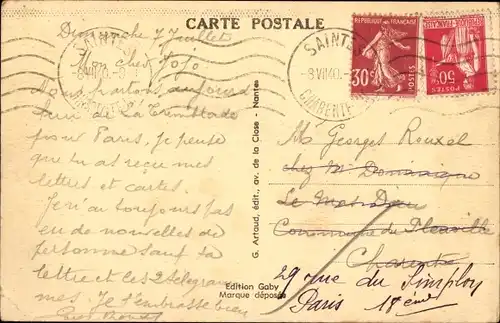 CARTE POSTALE
Dimanche 7 Juillet
Mon cher Jojo.
Nous partons aujourd
hui de La Tremblade
pour Paris, je pense
que tu as reçu mes
lettres et cartes.
Je n'ai toujours pas
eu de nouvelles de
personne sauf ta
lettre et ces 2 télégram
mes. Je t'embrasse bien
G. Artaud, édit., av. de la Close - Nantes
Edition Gaby
Marque déposée
SAINTES
-8 VII 40.
CHARENTE
SAINTES
-8 VII 40.
CHARENTE
REPUBLIQUE FRANÇAISE
30c
POSTES
50c
POSTES
Mr Georges Rouxel
chez Mr Dominique
Le
Commune de
Charente
29 rue du Simplon
Paris 18ème